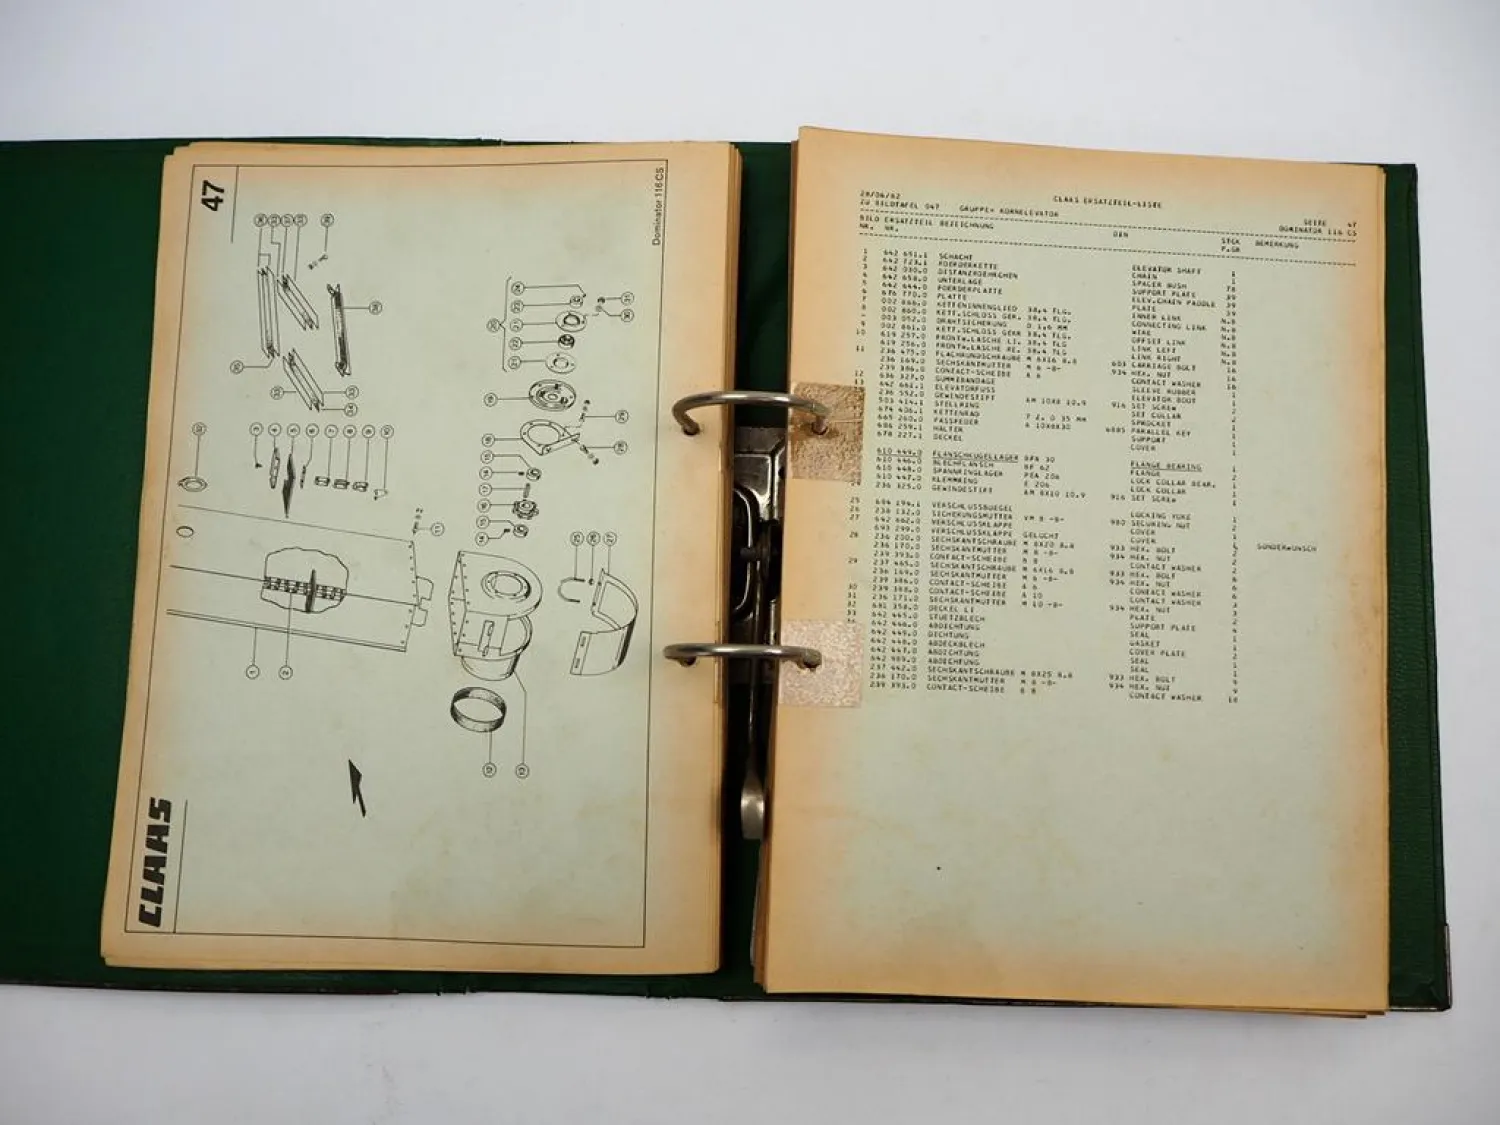 47
Dominator 116 CS
CLAAS
28/06/82 CLAAS ERSATZTEIL-LISTE SEITE 47
ZU BILDTAFEL 047 GRUPPE* KORNELEVATOR DOMINATOR 116 CS
BILD ERSATZTEIL BEZEICHNUNG DIN STCK BEMERKUNG
NR. NR. P.GR
1 642 651.1 SCHACHT ELEVATOR SHAFT 1
2 642 723.1 FOERDERKETTE CHAIN 1
3 642 030.0 DISTANZROEHRCHEN SPACER BUSH 78
4 642 658.0 UNTERLAGE SUPPORT PLATE 39
5 642 644.0 FOERDERPLATTE ELEV.CHAIN PADDLE 39
6 676 770.0 PLATTE PLATE 39
7 002 866.0 KETTENINNENGLIED 38,4 TLG. INNER LINK N.B
8 002 860.0 KETT.SCHLOSS GER. 38,4 TLG. CONNECTING LINK N.B
- 003 052.0 DRAHTSICHERUNG D 1,6 MM WIRE N.B
9 002 861.0 KETT.SCHLOSS GEKR 38,4 TLG. OFFSET LINK N.B
10 619 257.0 FRONTW.LASCHE LI. 38,4 TLG LINK LEFT N.B
619 256.0 FRONTW.LASCHE RE. 38,4 TLG LINK RIGHT N.B
11 236 475.0 FLACHRUNDSCHRAUBE M 6X16 8.8 603 CARRIAGE BOLT 16
236 169.0 SECHSKANTMUTTER M 6 -8- 934 HEX. NUT 16
239 386.0 CONTACT-SCHEIBE A 6 CONTACT WASHER 16
12 636 327.0 GUMMIBANDAGE SLEEVE RUBBER 1
13 642 661.1 ELEVATORFUSS ELEVATOR BOOT 1
236 552.0 GEWINDESTIFT AM 10X8 10.9 916 SET SCREW 2
503 414.1 STELLRING SET COLLAR 2
674 406.1 KETTENRAD 7 Z. D 35 MM SPROCKET 1
665 260.0 PASSFEDER A 10X8X30 6885 PARALLEL KEY 1
686 259.1 HALTER SUPPORT 1
678 227.1 DECKEL COVER 1
610 449.0 FLANSCHKUGELLAGER BFN 30 FLANGE BEARING 1
610 446.0 BLECHFLANSCH BF 62 FLANGE 2
610 448.0 SPANNRINGLAGER PEA 206 LOCK COLLAR BEAR. 1
610 447.0 KLEMMRING E 206 LOCK COLLAR 1
24 236 325.0 GEWINDESTIFT AM 8X10 10.9 916 SET SCREW 1
25 684 194.1 VERSCHLUSSBUEGEL LOCKING YOKE 1
26 238 132.0 SICHERUNGSMUTTER VM 8 -8- 980 SECURING NUT 2
27 642 662.0 VERSCHLUSSKLAPPE COVER 1
693 299.0 VERSCHLUSSKLAPPE GELOCHT COVER 1 SONDERWUNSCH
28 236 200.0 SECHSKANTSCHRAUBE M 8X20 8.8 933 HEX. BOLT 2
236 170.0 SECHSKANTMUTTER M 8 -8- 934 HEX. NUT 2
239 393.0 CONTACT-SCHEIBE B 8 CONTACT WASHER 2
29 237 465.0 SECHSKANTSCHRAUBE M 6X16 8.8 933 HEX. BOLT 6
236 169.0 SECHSKANTMUTTER M 6 -8- 934 HEX. NUT 6
239 386.0 CONTACT-SCHEIBE A 6 CONTACT WASHER 6
30 239 388.0 CONTACT-SCHEIBE A 10 CONTACT WASHER 3
31 236 171.0 SECHSKANTMUTTER M 10 -8- 934 HEX. NUT 3
32 681 358.0 DECKEL LI PLATE 2
33 642 445.0 STUETZBLECH SUPPORT PLATE 4
642 446.0 ABDICHTUNG SEAL 1
642 449.0 DICHTUNG GASKET 1
642 448.0 ABDECKBLECH COVER PLATE 2
642 447.0 ABDICHTUNG SEAL 1
642 989.0 ABDICHTUNG SEAL 1
237 442.0 SECHSKANTSCHRAUBE M 8X25 8.8 933 HEX. BOLT 9
236 170.0 SECHSKANTMUTTER M 8 -8- 934 HEX. NUT 9
239 393.0 CONTACT-SCHEIBE B 8 CONTACT WASHER 18